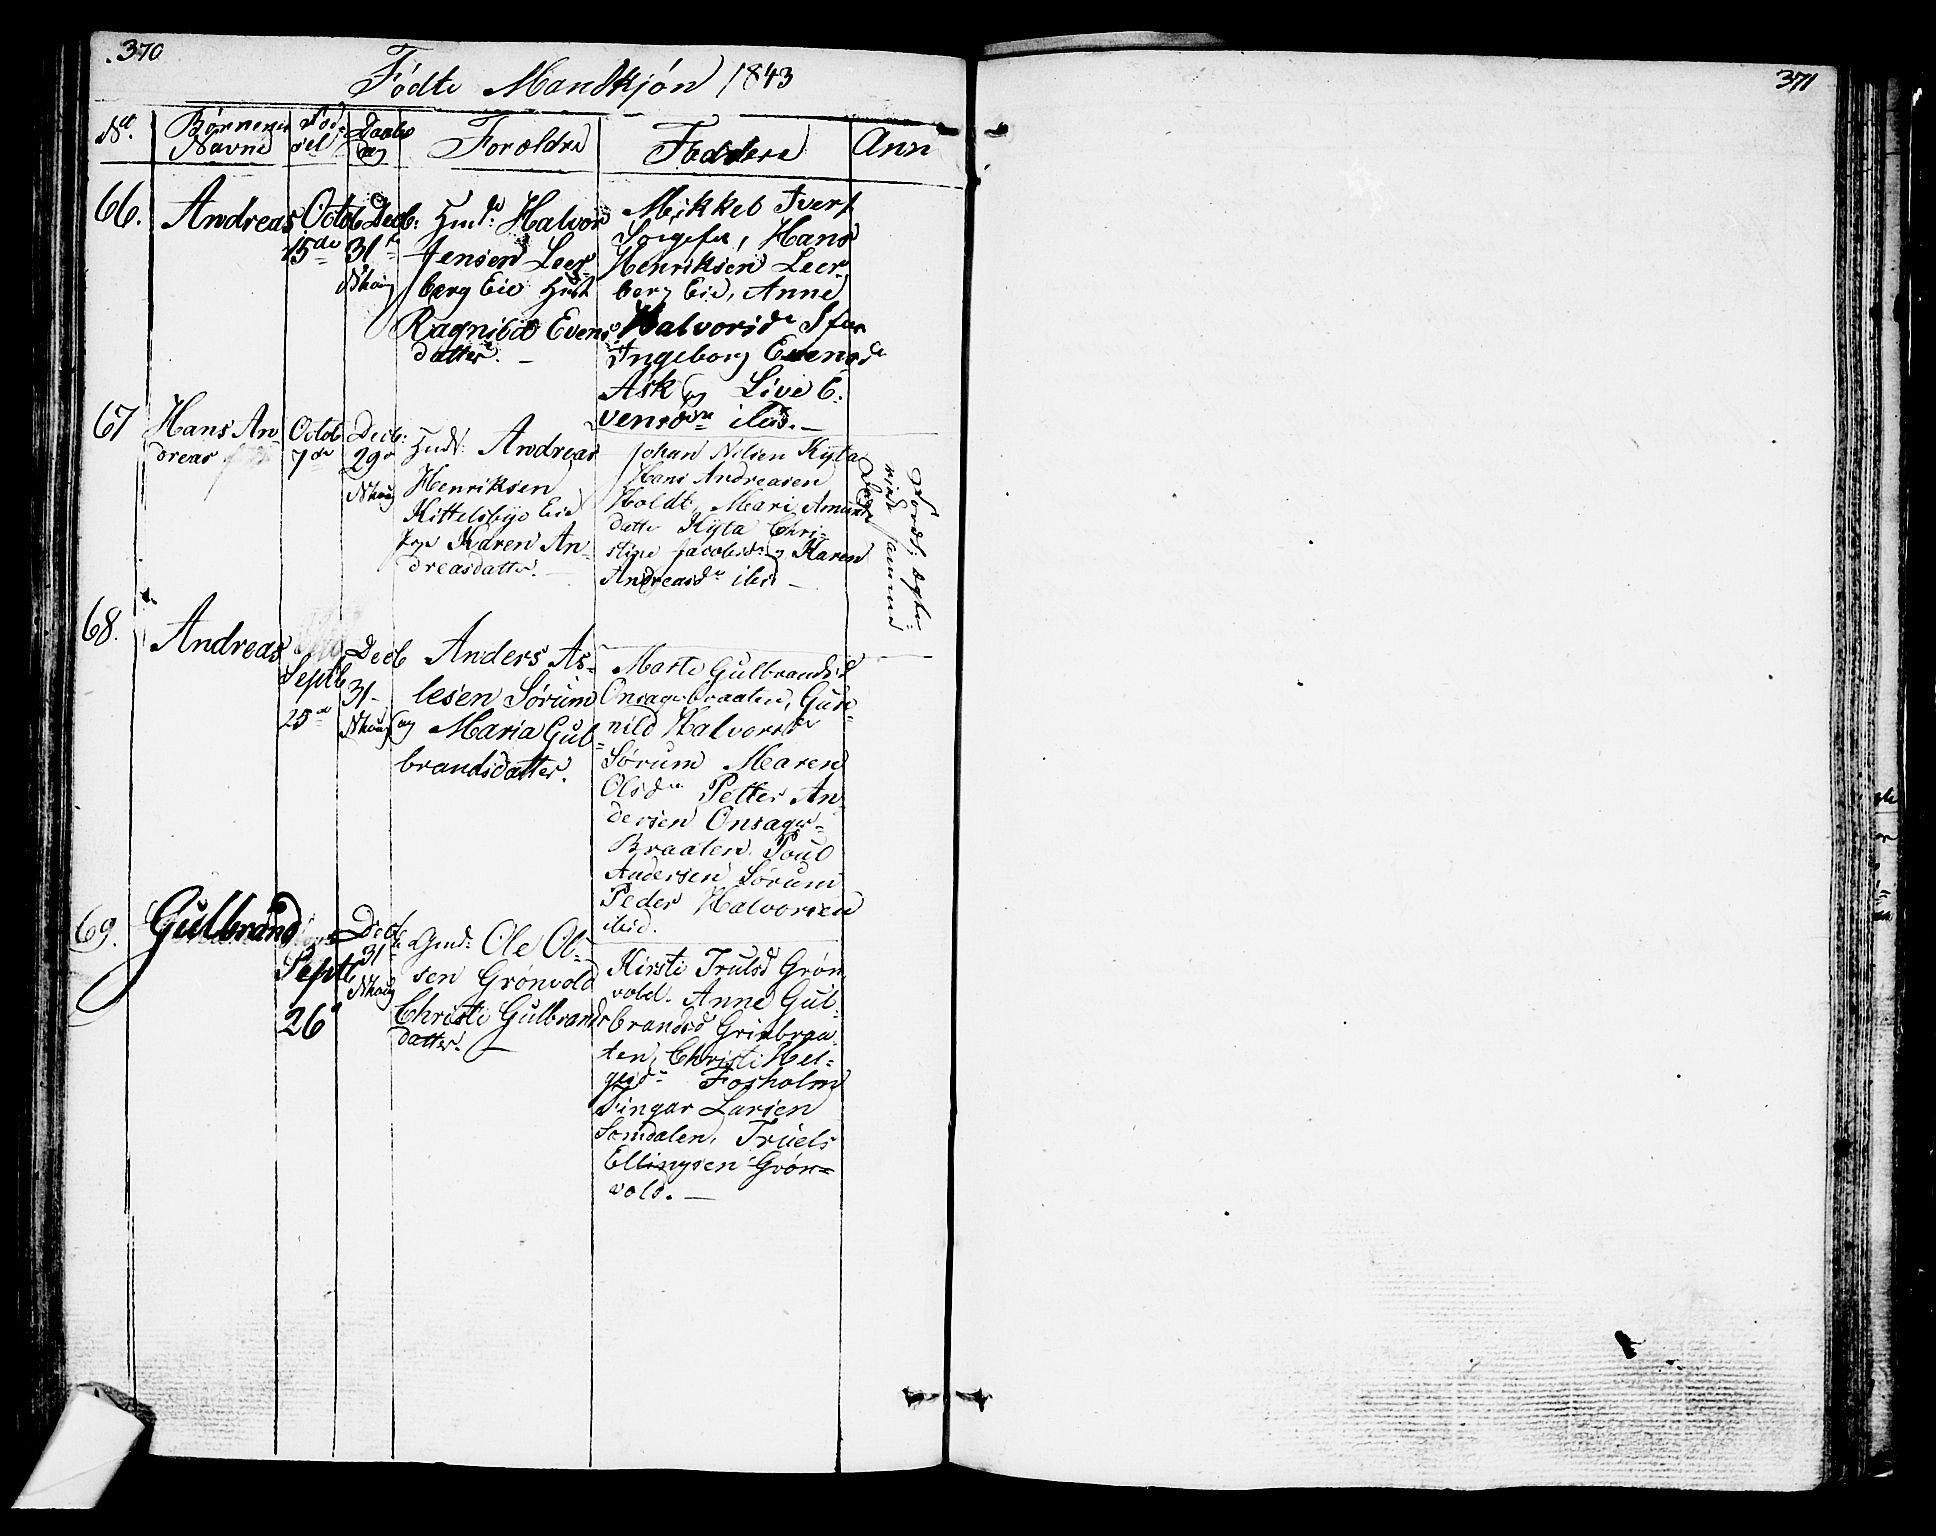 370
371
Födte Mandkjön 1843
No. Børnenes Navne Föd-sel Daabs dag Foroldre Faddere Ann
66. Andreas Octob 15de Decb: 31te Nhoug
Hmd: Halvor
Jensen Leer-
berg Eie Hust
Ragnild Evens
datter. —
Mikkel Ivers
Hans
Henriksen Leer
berg Eie, Anne
Halvorsdr
Ingeborg Evensdr
Ask og Live E-
vensdr ibid. —
67 Hans An-
dreas
Octob 7de Decb: 29de Nhoug
Hmd: Andreas
Henriksen
Kittelsbye Eie
Karen An-
dreasdatter. —
Johan Nilsen Kyta
Hans Andreasen
Holdt, Mari Amund
datter Kyta Chri-
stine Jacobsdr og Karen
Andreasdr ibid —
68. Andreas
Septb 25de Decb 31 Nhoug
Anders As-
lesen Sørum
og Maria Gul-
brandsdatter.
Marte Gulbrandsd
Onsagerbraaten, Gun-
nild Halvorsdr
Sørum Maren
Olsdr Petter An-
dersen Onsager-
Braaten. Poul
Andersen Sørum
Peder Halvorsen
ibid.
69. Gulbrand
Septb 26 Decb 31te Nhoug
Gmd: Ole Ol-
sen Grönvold
Christi Gulbrands
datter. —
Kirsti Trulsd Grøn
vold. Anne Gul-
brandsd Grinbraa
ten, Christi Hel-
gesdr Fosholm
Fingar Larsen
Somdalen, Truels
Ellingsen Grøn-
vold. —